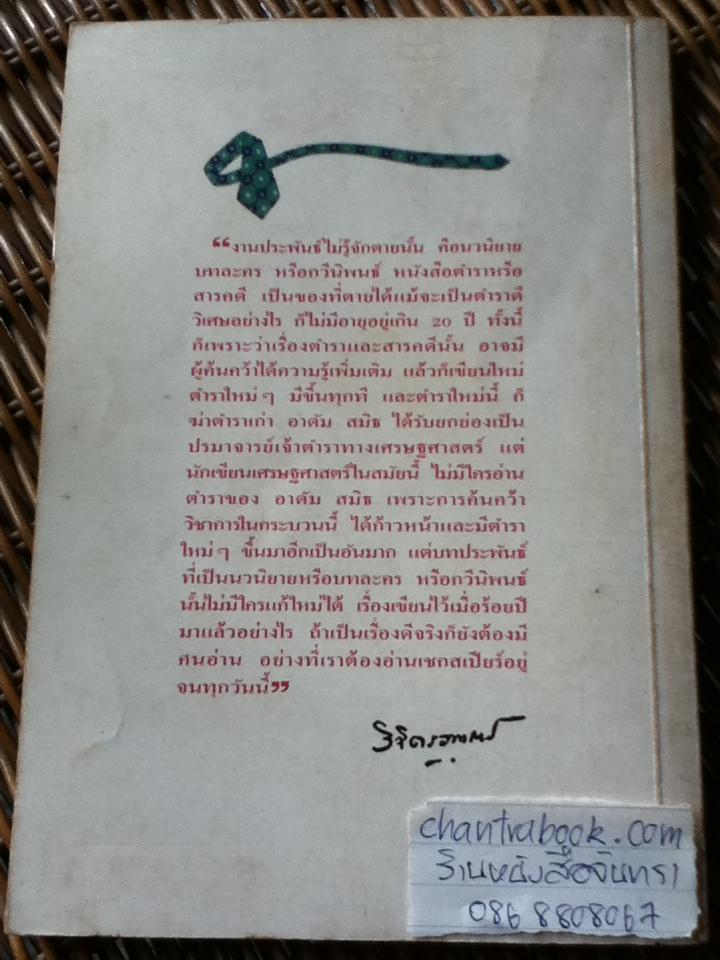 “งานประพันธ์ไม่รู้จักตายนั้น คือนวนิยาย
บทละคร หรือกวีนิพนธ์ หนังสือตำราหรือ
สารคดี เป็นของที่ตายได้แม้จะเป็นตำราดี
วิเศษอย่างไร ก็ไม่มีอายุอยู่เกิน 20 ปี ทั้งนี้
ก็เพราะว่าเรื่องตำราและสารคดีนั้น อาจมี
ผู้ค้นคว้าได้ความรู้เพิ่มเติม แล้วก็เขียนใหม่
ตำราใหม่ๆ มีขึ้นทุกที และตำราใหม่นี้ ก็
ฆ่าตำราเก่า อาดัม สมิธ ได้รับยกย่องเป็น
ปรมาจารย์เจ้าตำราทางเศรษฐศาสตร์ แต่
นักเขียนเศรษฐศาสตร์ในสมัยนี้ ไม่มีใครอ่าน
ตำราของ อาดัม สมิธ เพราะการค้นคว้า
วิชาการในกระบวนนี้ ได้ก้าวหน้าและมีตำรา
ใหม่ๆ ขึ้นมาอีกเป็นอันมาก แต่บทประพันธ์
ที่เป็นนวนิยายหรือบทละคร หรือกวีนิพนธ์
นั้นไม่มีใครแก้ใหม่ได้ เรื่องเขียนไว้เมื่อร้อยปี
มาแล้วอย่างไร ถ้าเป็นเรื่องดีจริงก็ยังต้องมี
คนอ่าน อย่างที่เราต้องอ่านเชกสเปียร์อยู่
จนทุกวันนี้”
chantrabook.com
ร้านหนังสือจันทรา
086 8808067